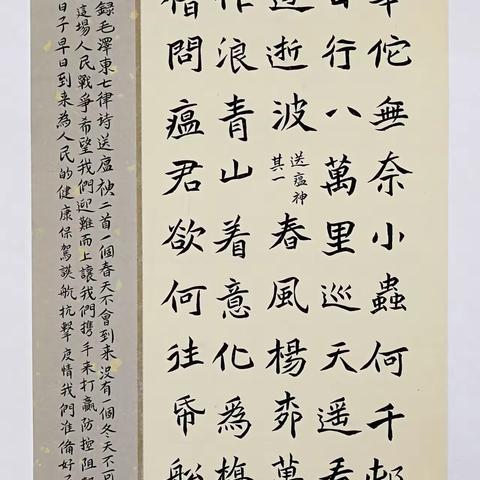 佗無奈小蟲何千邨
日行八萬里巡天遥看
逝波
送瘟神
其一
春風楊柳萬
作浪青山着意化為橋
借問瘟君欲何往帋船
録毛澤東七律诗送瘟神二首一個春天不會到来没有一個冬天不可
這場人民戰爭希望我們迎難而上讓我們携手来打贏防控阻
日子早日到来為人民的健康保駕護航抗擊疫情我們准備好